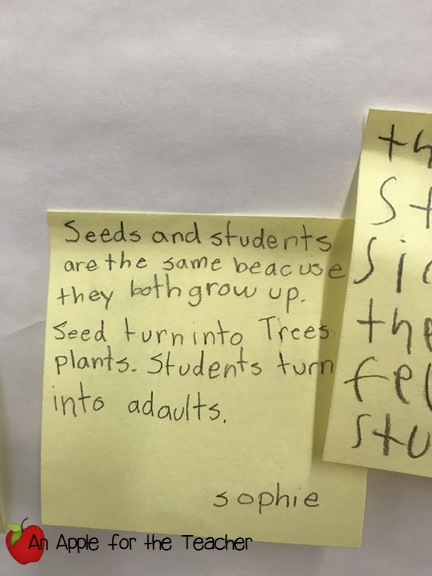 Seeds and students
are the same beacuse
they both grow up.
Seed turn into Trees
plants. Students turn
into adaults.
sophie
th
st
sic
the
fel
stu
An Apple for the Teacher